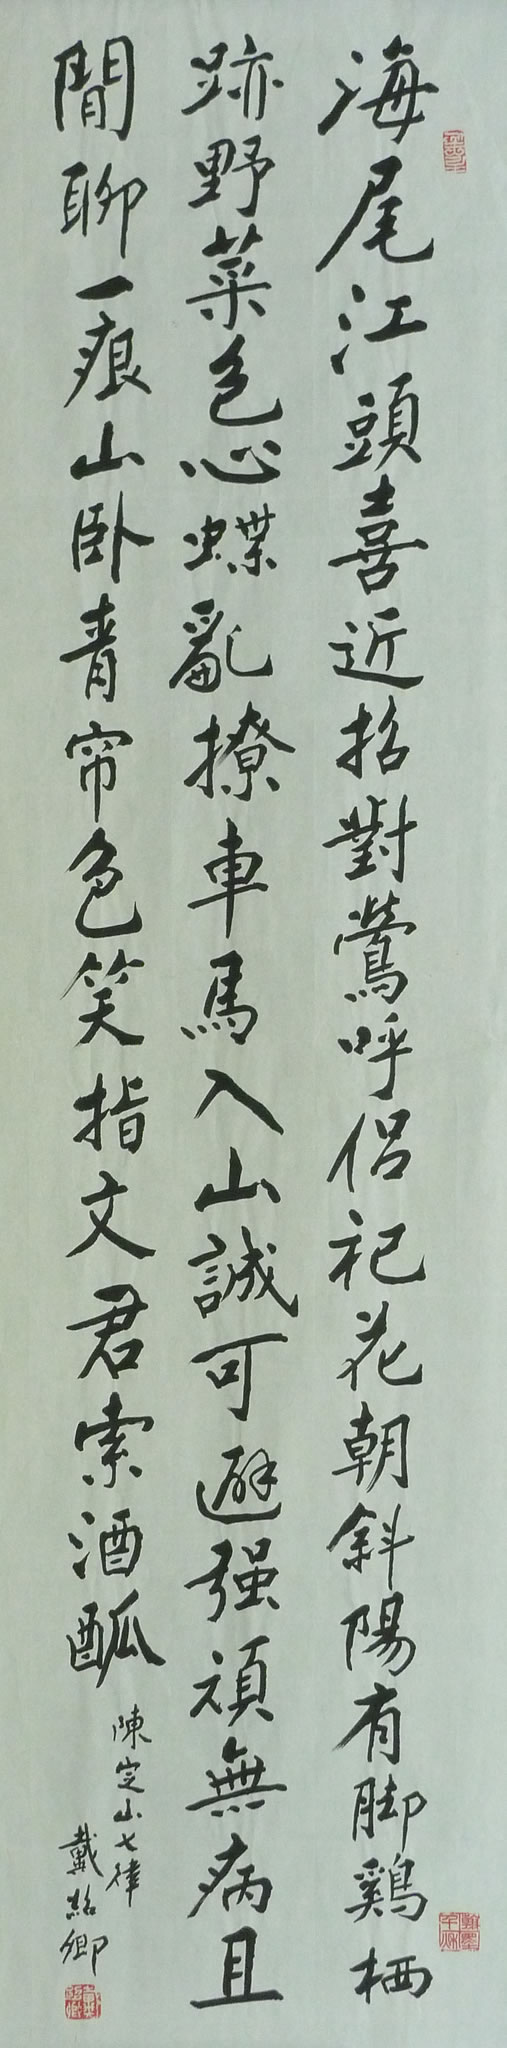 海尾江頭喜近招對鶯呼侶祀花朝斜陽有脚鷄栖
跡野菜色心蝶亂撩車馬入山誠可避强頑無病且
閒聊一痕山卧青帘色笑指文君索酒
陳定山七律
戴紹卿